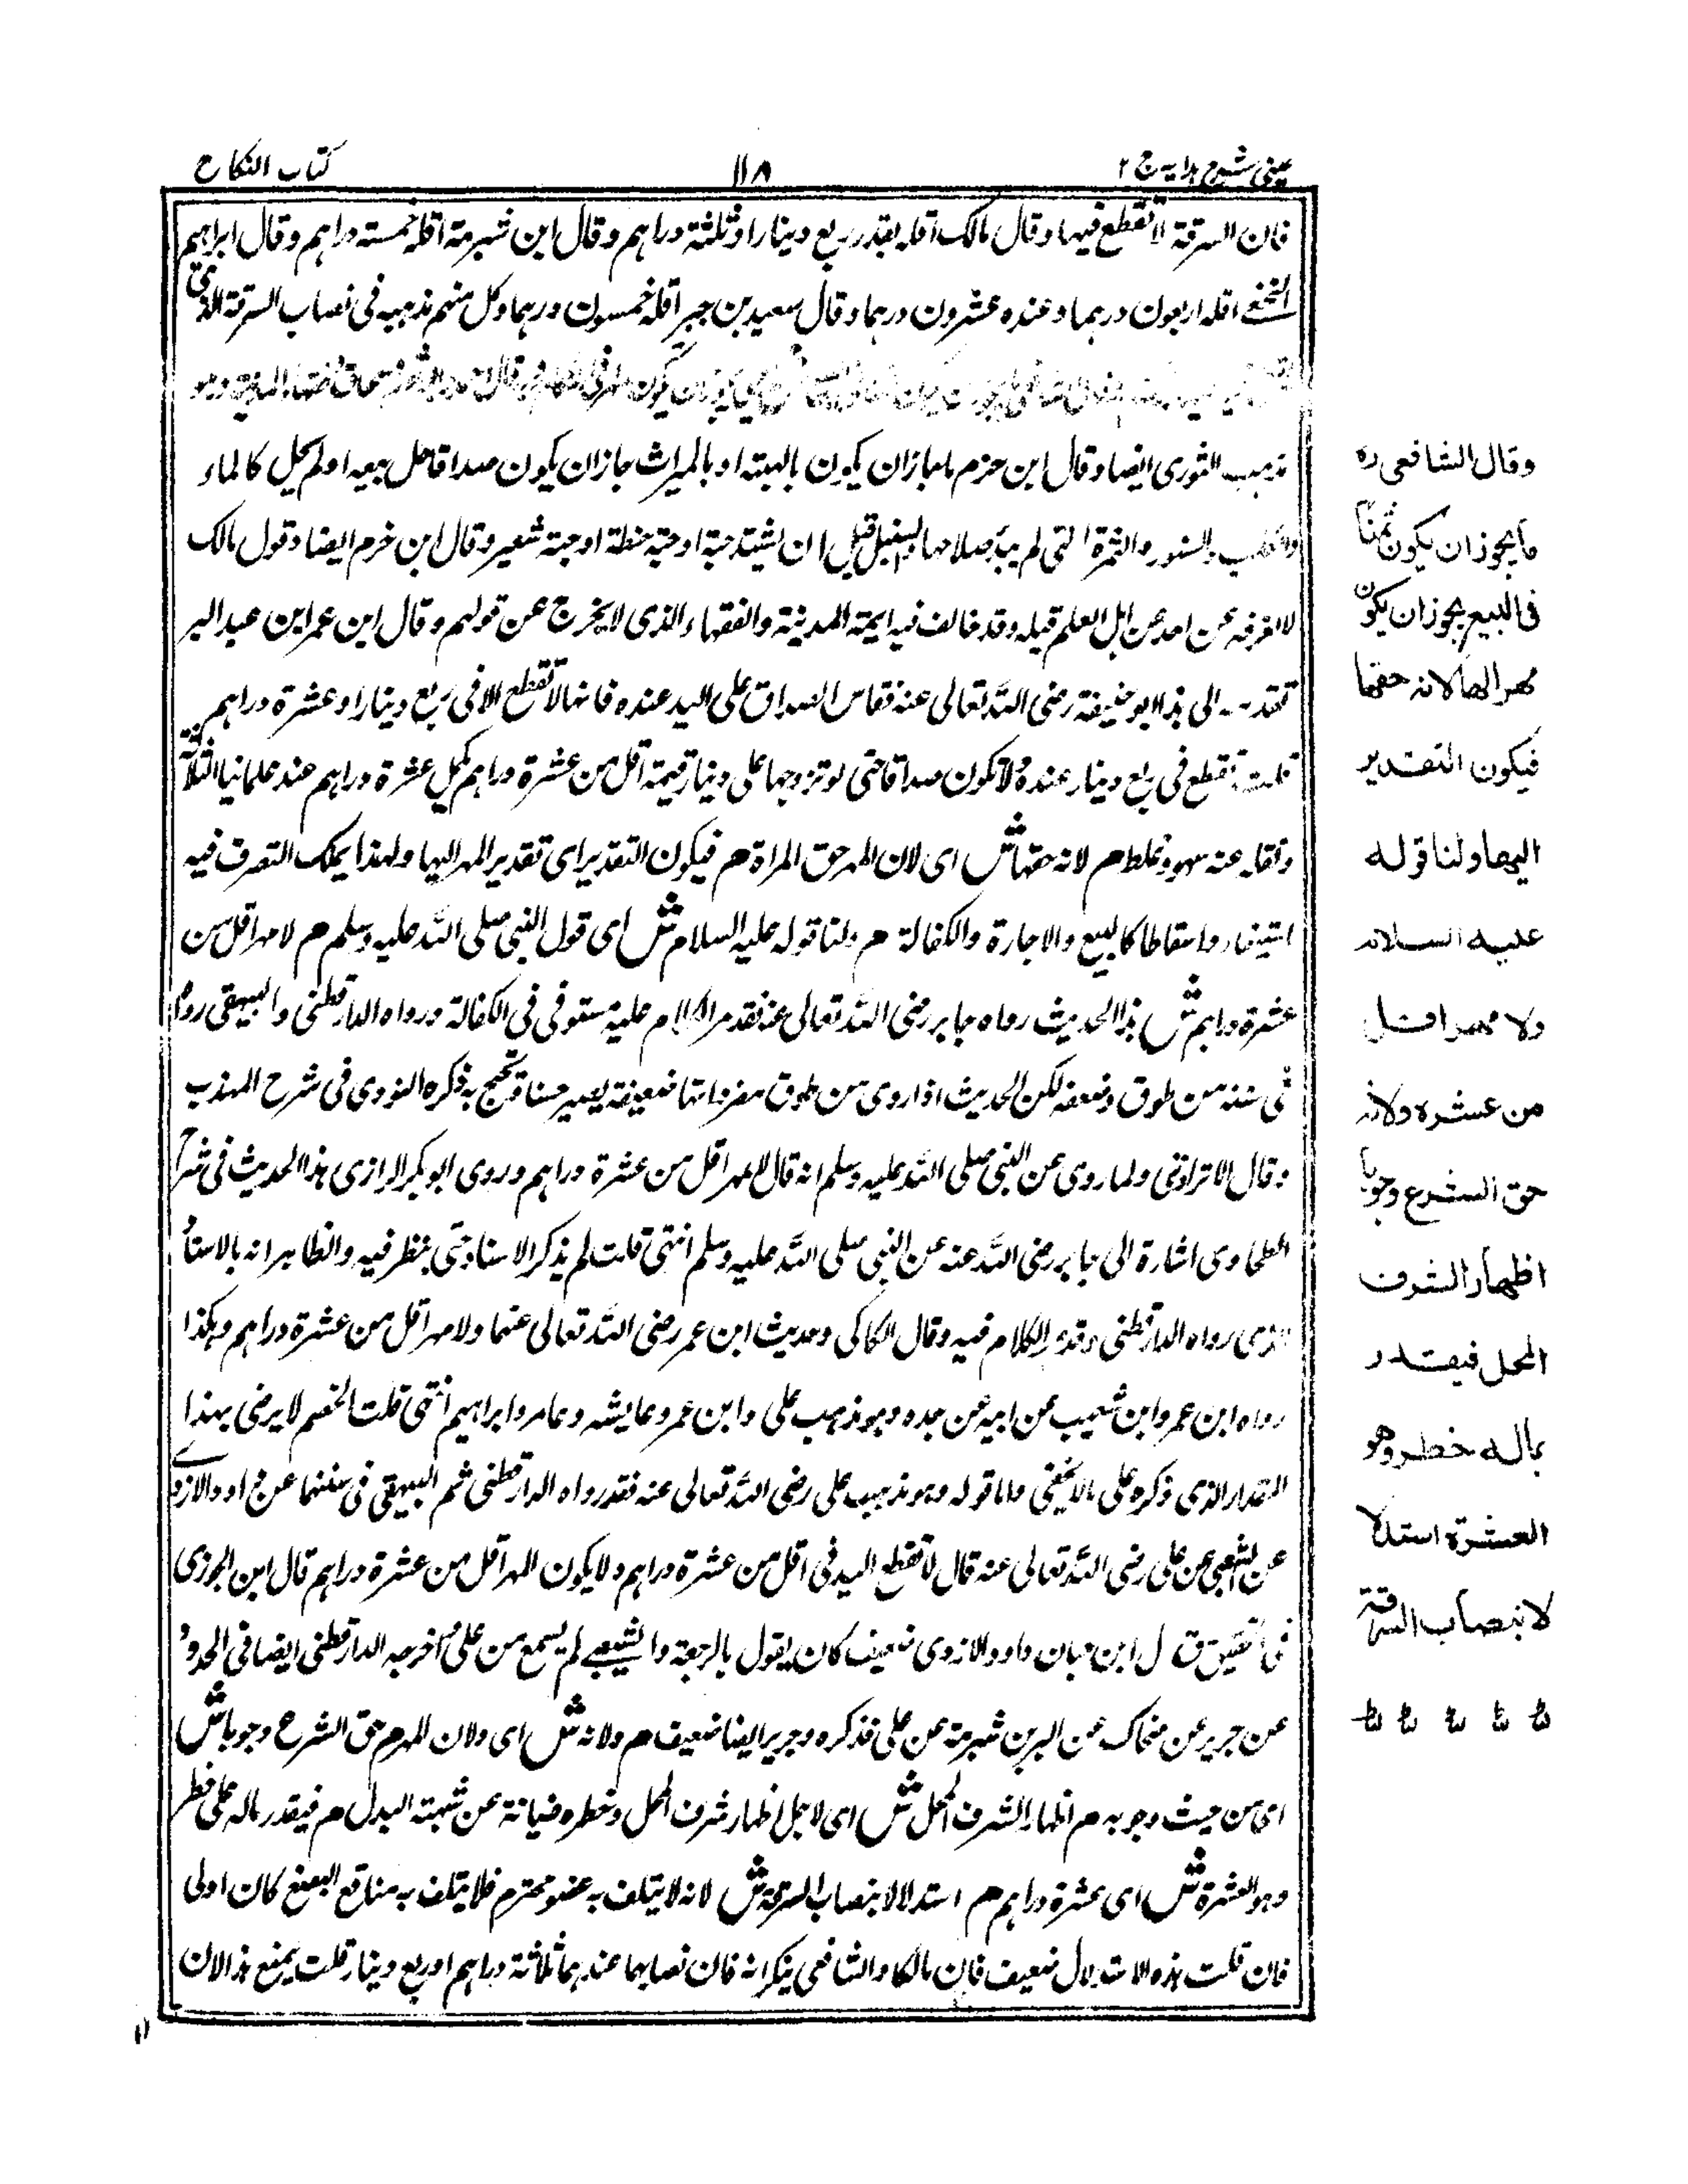 عینی شرح ہدایہ ج ۲
۱۱۸
کتاب النکاح
فان السرقة لا تقطع فیها وقال مالک اقله بقدر ربع دینار او ثلثة دراهم وقال ابن شبرمة اقله خمسة دراهم وقال ابراهیم
النخعی اقله اربعون درهما وعنده عشرون درهما وقال سعید بن جبیر اقله خمسون درهما وکل منهم مذهبه فی نصاب السرقة الذی
یکون
مذهب الثوری ایضا وقال ابن حزم ما جاز ان یکون بالهبة او بالمیراث جاز ان یکون صداقا حل بیعه او لم یحل کالماء
والکلب والسنور والثمرة التی لم یبد صلاحها والسنبل قبل ان یشتد حبة او حبة حنطة او حبة شعیر وقال ابن حزم ایضا وقول مالک
لا نعرفه عن احد من اهل العلم قبله وقد خالف فیه ایمة المدینة والفقهاء الذی لا یخرج عن قولهم وقال ابن عمر ابن عبد البر
تقدمه الی هذا ابو حنیفة رضی الله تعالی عنه فقاس الصداق علی الید عنده فانها لا تقطع الا فی ربع دینار او عشرة دراهم
قلت تقطع فی ربع دینار عنده ولا تکون صداقا حتی لو تزوجها علی دینار قیمته اقل من عشرة دراهم کمل عشرة دراهم عند علمائنا الثلاثة
ونقله عنه سهو وغلط م لانه حقها ش ای لان المهر حق المراة م فیکون التقدیر ای تقدیر المهر الیها ولهذا یملک التصرف فیه
استیفاء واسقاطا کالبیع والاجارة والکفالة م ولنا قوله علیه السلام ش ای قول النبی صلی الله علیه وسلم م لا مهر اقل من
عشرة دراهم ش هذا الحدیث رواه جابر رضی الله تعالی عنه تقدم الکلام علیه مستوفی فی الکفالة ورواه الدارقطنی والبیهقی رواه
فی سننه من طرق وضعفه لکن الحدیث اذا روی من طرق مفرداتها ضعیفة یصیر حسنا ویحتج به ذکره النووی فی شرح المهذب
وقال الاترازی ولما روی عن النبی صلی الله علیه وسلم انه قال لا مهر اقل من عشرة دراهم وروی ابو بکر الرازی هذا الحدیث فی شرح
الطحاوی اشارة الی جابر رضی الله عنه عن النبی صلی الله علیه وسلم انتهی قلت لم یذکر الاسناد حتی ینظر فیه والظاهر انه بالاسناد
الذی رواه الدارقطنی وقد مر الکلام فیه وقال الکاکی وحدیث ابن عمر رضی الله تعالی عنهما ولا مهر اقل من عشرة دراهم وهکذا
رواه ابن عمر وابن شعیب عن ابیه عن جده وهو مذهب علی وابن عمر وعایشه وعامر وابراهیم انتهی قلت الخصم لا یرضی بهذا
المقدار الذی ذکره علی مالا یخفی واما قوله وهو مذهب علی رضی الله تعالی عنه فقد رواه الدارقطنی ثم البیهقی فی سننهما عن داود الازدی
عن الشعبی عن علی رضی الله تعالی عنه قال لا تقطع الید فی اقل من عشرة دراهم ولا یکون المهر اقل من عشرة دراهم قال ابن الجوزی
فی التحقیق قال ابن حبان داود الازدی ضعیف کان یقول بالرجعة والشعبی لم یسمع من علی اخرجه الدارقطنی ایضا فی الحدود
عن جریر عن ضحاک عن البر بن شبرمة عن علی فذکره وجریر ایضا ضعیف م ولانه ش ای ولان المهر م حق الشرع وجوبا ش
ای من حیث وجوبه م اظهارا لشرف المحل ش ای لاجل اظهار شرف المحل وخطره صیانة عن شبهة البدل م فیقدر ماله علی خطر
وهو العشرة ش ای عشرة دراهم م استدلالا بنصاب السرقة ش لانه لا یتلف به عضو محترم فلا یتلف به منافع البضع کان اولی
فان قلت هذه الاستدلال ضعیف فان مالکا والشافعی ینکرانه فان نصابها عندهما ثلاثة دراهم او ربع دینار قلت یمنع هذا لان
وقال الشافعی ره
ما یجوز ان یکون ثمنا
فی البیع یجوز ان یکون
مهرا لها لانه حقها
فیکون التقدیر
الیها ولنا قوله
علیه السلام
ولا مهر اقل
من عشره ولانه
حق الشرع وجوبا
اظهار الشرف
المحل فیقدر
بماله خطر وهو
العشرة استدلا
لا بنصاب السرقة